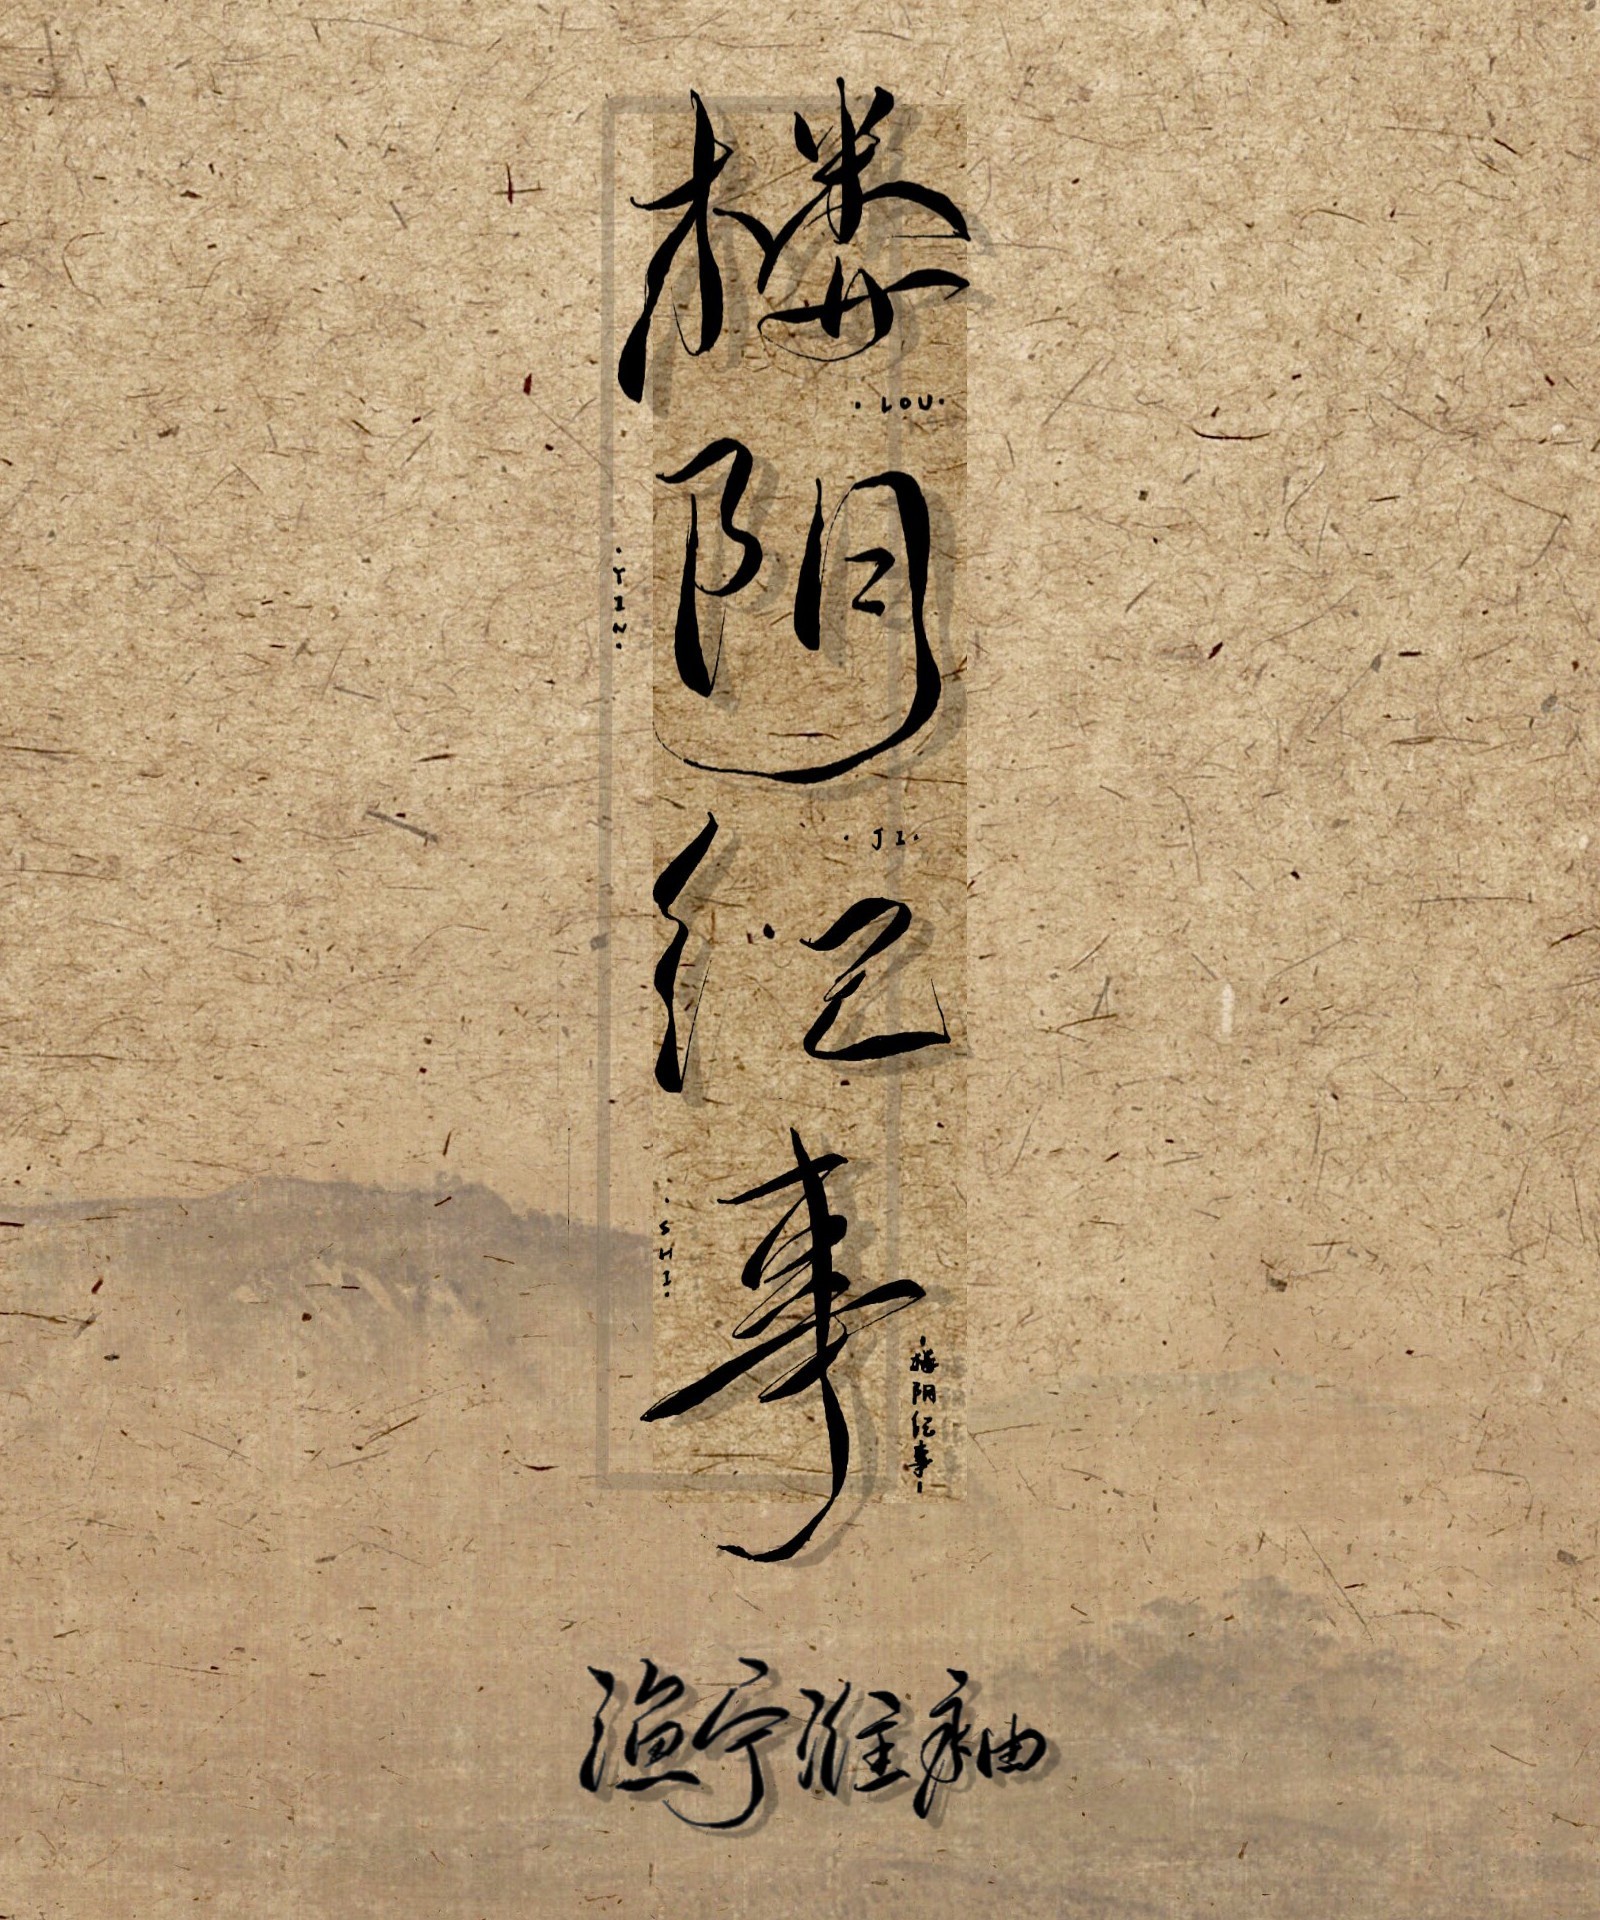 楼阴纪事
·LOU·
·YIN·
·JI·
·SHI·
·楼阴纪事·